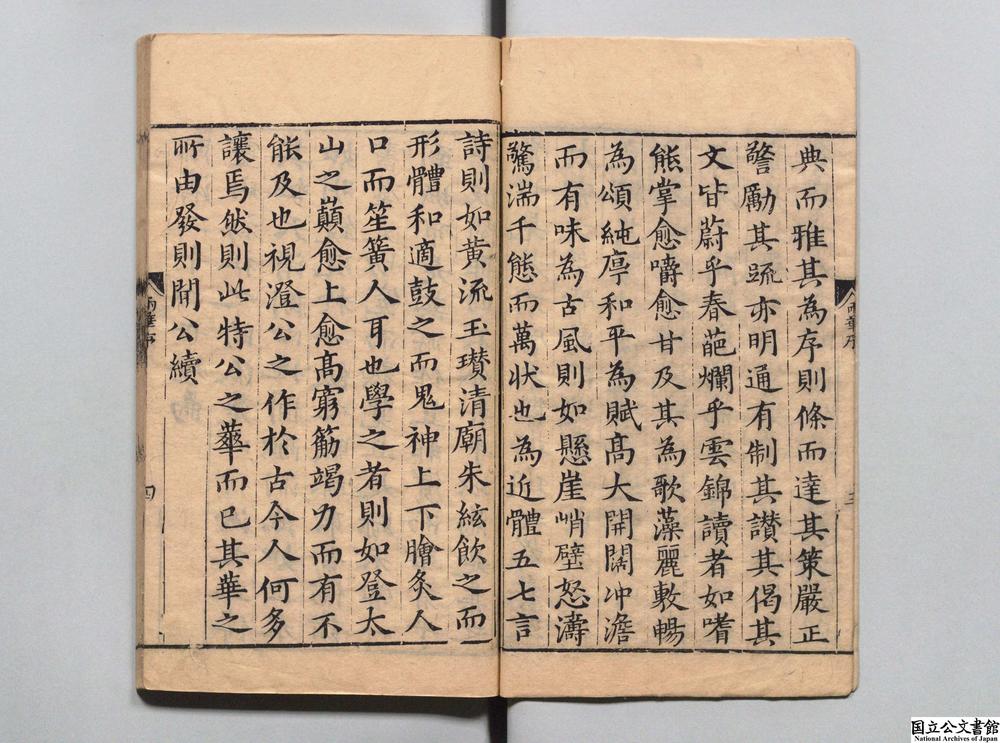 典而雅其為序則條而達其策嚴正
警勵其疏亦明通有制其讃其偈其
文皆蔚乎春葩爛乎雲錦讀者如嗜
熊掌愈嚼愈甘及其為歌藻麗敷暢
為頌純渟和平為賦高大開闊冲澹
而有味為古風則如懸崖峭壁怒濤
驚湍千態而萬狀也為近體五七言
詩則如黄流玉瓚清廟朱絃飲之而
形體和適鼓之而鬼神上下膾炙人
口而笙簧人耳也學之者則如登太
山之巔愈上愈高窮筋竭力而有不
能及也視澄公之作於古今人何多
讓焉然則此特公之華而已其華之
所由發則閒公續
雨華序
四
国立公文書館
National Archives of Japan